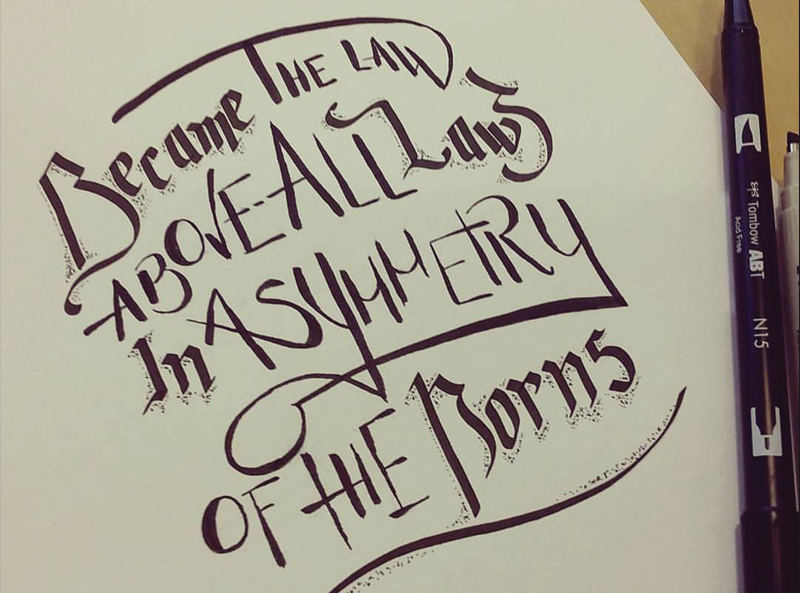 Became THE LAW
ABOVE ALL Laws
In ASYMMETRY
OF THE Norns
Tombow ABT
Acid Free
N15